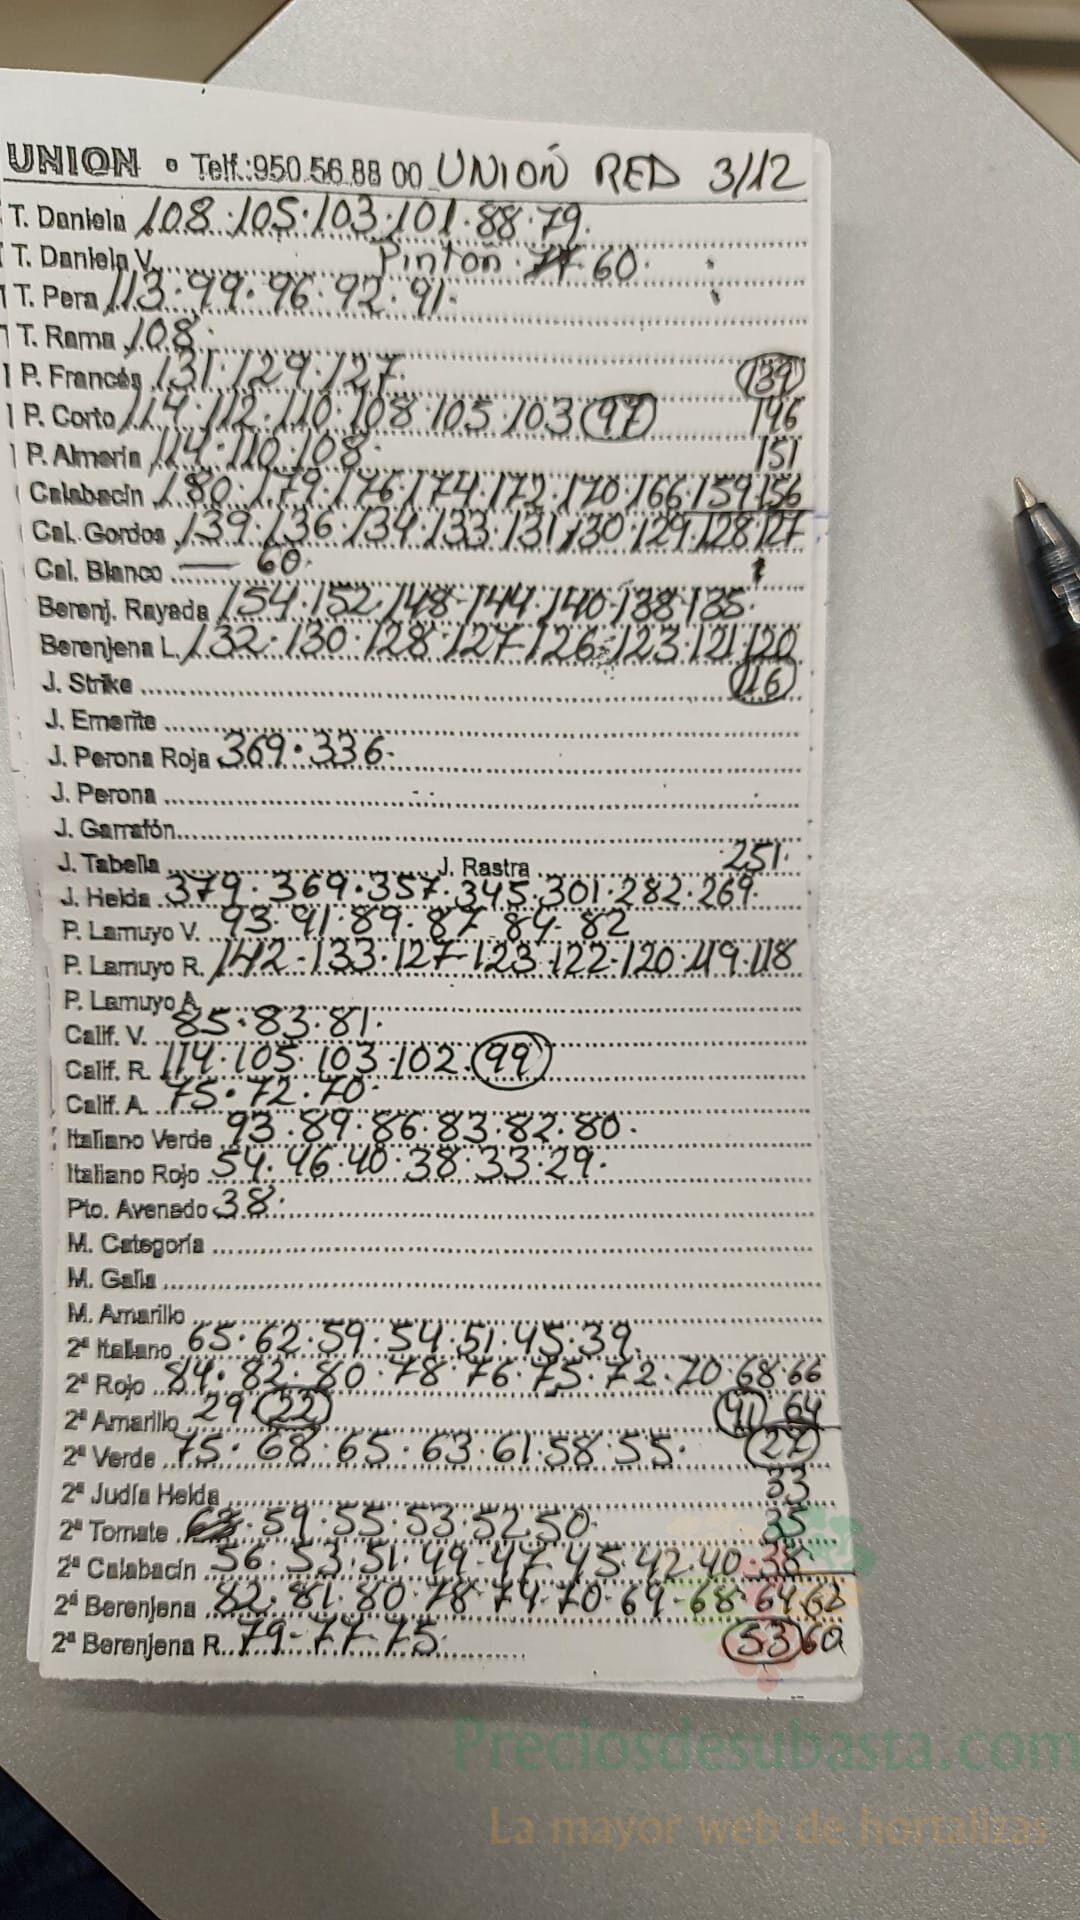 UNION • Telf.:950.56.88 00 UNIOÑ RED 3/12
T. Daniela 108·105·103·101·88·79.
T. Daniela V. Pintoñ 60·
T. Pera 113·99·96·92·91·
T. Rama 108·
P. Francés 131·129·127· 139
P. Corto 114·112·110·108·105·103 97 146
P. Almería 114·110·108· 151
Calabacín 180·179·176·174·172·170·166·159·156
Cal. Gordos 139·136·134·133·131·130·129·128·127
Cal. Blanco — 60·
Berenj. Rayada 154·152·148·144·140·138·135·
Berenjena L. 132·130·128·127·126·123·121·120
J. Strike 116
J. Emerite
J. Perona Roja 369·336·
J. Perona
J. Garrafón
J. Tabella J. Rastra 251·
J. Helda 379·369·357·345·301·282·269·
P. Lamuyo V. 93·91·89·87·84·82
P. Lamuyo R. 142·133·127·123·122·120·119·118
P. Lamuyo A.
Calif. V. 85·83·81·
Calif. R. 114·105·103·102· 99
Calif. A. 75·72·70·
Italiano Verde 93·89·86·83·82·80·
Italiano Rojo 54·46·40·38·33·29·
Pto. Avenado 38·
M. Categoría
M. Galia
M. Amarillo
2ª Italiano 65·62·59·54·51·45·39.
2ª Rojo 84·82·80·78·76·75·72·70·68·66
2ª Amarillo 29 22 41 64
2ª Verde 75·68·65·63·61·58·55· 27
2ª Judía Helda 33
2ª Tomate 59·55·53·52·50· 35
2ª Calabacín 56·53·51·49·47·45·42·40·38
2ª Berenjena 82·81·80·78·74·70·69·68·64·62
2ª Berenjena R. 79·77·75· 53 60
Preciosdesubasta.com
La mayor web de hortalizas